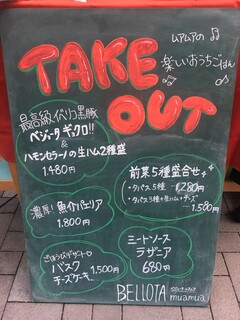 ムアムアの
楽しいおうちごはん
TAKE
OUT
最高級イベリコ黒豚
ベジョータギュクロ!!
&
ハモンセラーノの生ハム2種盛
1.480円
前菜5種盛合せ
・タパス5種 1.280円
・タパス3種+生ハム+チーズ
1.580円
濃厚!魚介パエリア
1.800円
ごほうびデザート♡
バスク
チーズケーキ 1,500円
ミートソース
ラザニア
680円
BELLOTA
muamua